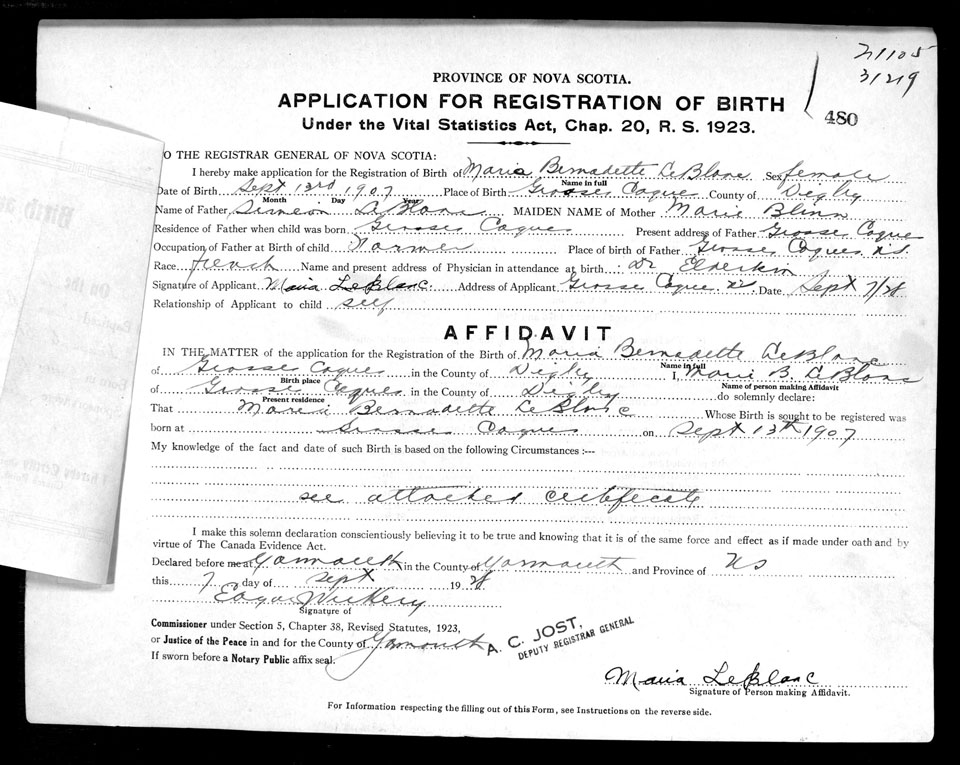 21105
31219
480
PROVINCE OF NOVA SCOTIA.
APPLICATION FOR REGISTRATION OF BIRTH
Under the Vital Statistics Act, Chap. 20, R. S. 1923.
TO THE REGISTRAR GENERAL OF NOVA SCOTIA:
I hereby make application for the Registration of Birth of Maria Bernadette LeBlanc Sex female
Name in full
Date of Birth Sept 13rd 1907 Place of Birth Grosses Coques County of Digby
Month Day Year
Name of Father Simeon LeBlanc MAIDEN NAME of Mother Marie Blinn
Residence of Father when child was born Grosses Coques Present address of Father Grosses Coques
Occupation of Father at Birth of child Farmer Place of birth of Father Grosses Coques N.S.
Race french Name and present address of Physician in attendance at birth Dr Elderkin
Signature of Applicant Maria LeBlanc Address of Applicant Grosse Coques NS Date Sept 7/28
Relationship of Applicant to child self
AFFIDAVIT
IN THE MATTER of the application for the Registration of the Birth of Maria Bernadette LeBlanc
Name in full
of Grosses Coques in the County of Digby I, Marie B. LeBlanc
Birth place Name of person making Affidavit
of Grosses Coques in the County of Digby do solemnly declare:
Present residence
That Maria Bernadette LeBlanc Whose Birth is sought to be registered was
born at Grosses Coques on Sept 13th 1907
My knowledge of the fact and date of such Birth is based on the following Circumstances :---
see attached certificate
I make this solemn declaration conscientiously believing it to be true and knowing that it is of the same force and effect as if made under oath and by
virtue of The Canada Evidence Act.
Declared before me at Yarmouth in the County of Yarmouth and Province of NS
this 7 day of Sept 1928
Edgar Vickery
Signature of
Commissioner under Section 5, Chapter 38, Revised Statutes, 1923,
or Justice of the Peace in and for the County of Yarmouth
If sworn before a Notary Public affix seal.
A. C. JOST,
DEPUTY REGISTRAR GENERAL
Maria LeBlanc
Signature of Person making Affidavit.
For Information respecting the filling out of this Form, see Instructions on the reverse side.